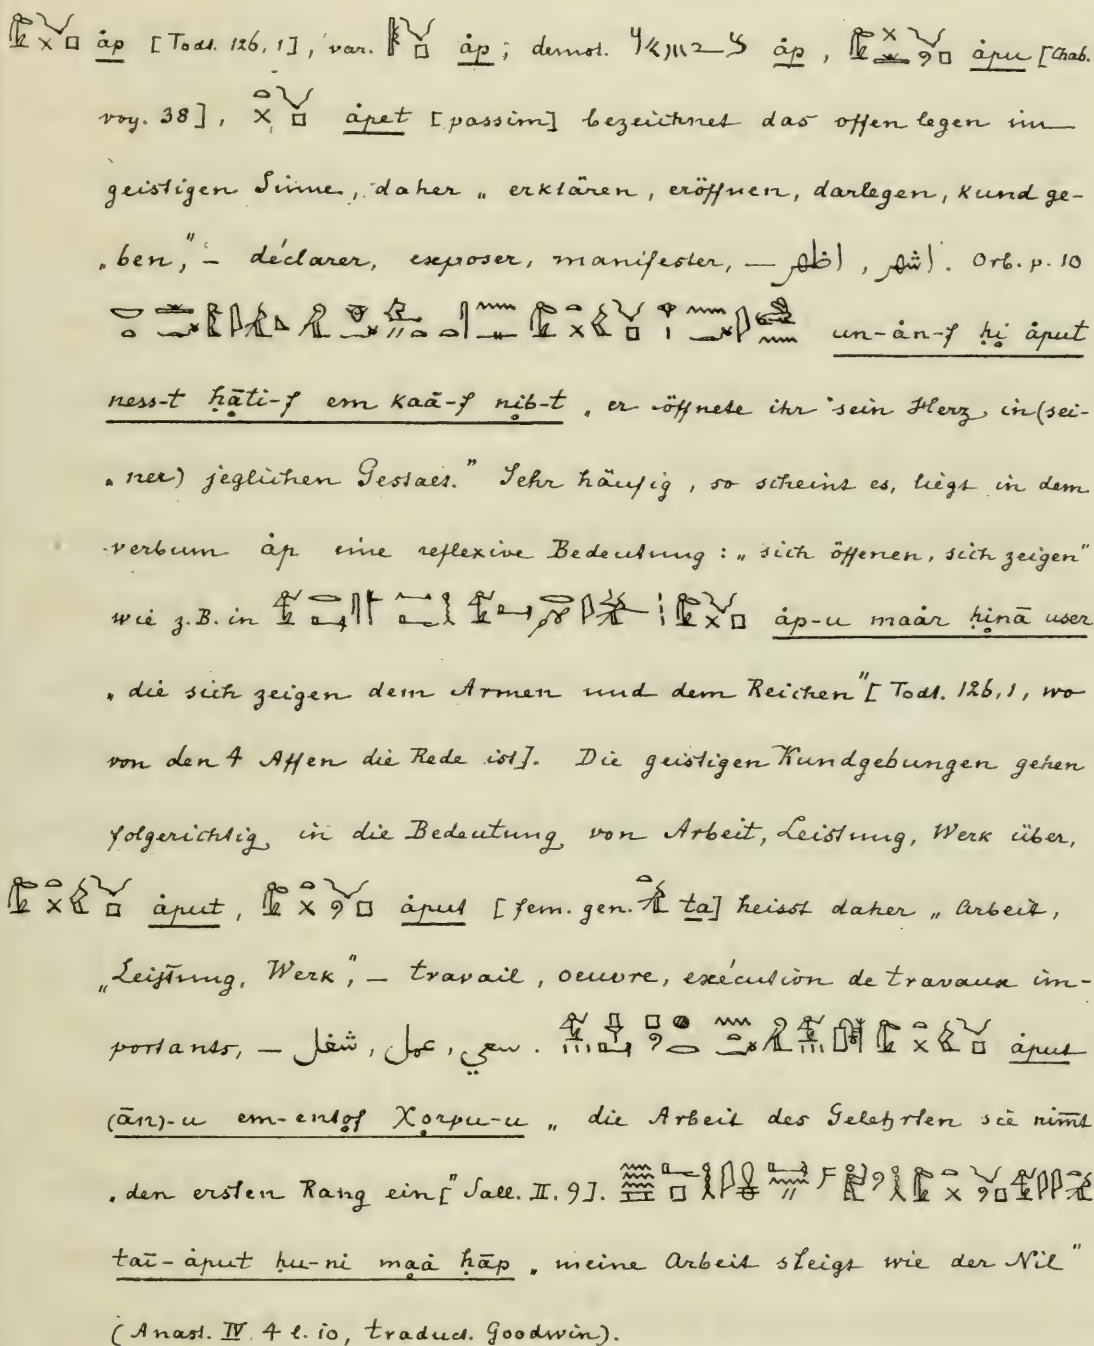 åp [Todt. 126, 1], var. åp; demot. åp, åpu [Chab.
voy. 38], åpet [passim] bezeichnet das offen legen im
geistigen Sinne, daher „erklären, eröffnen, darlegen, kund ge-
„ben," – déclarer, exposer, manifester, – اظهر, اشهر. Orb. p. 10
un-ån-f ḥi åput
ness-t ḥāti-f em kaā-f nib-t „er öffnete ihr sein Herz in (sei-
„ner) jeglichen Gestalt." Sehr häufig, so scheint es, liegt in dem
verbum åp eine reflexive Bedeutung: „sich öffenen, sich zeigen"
wie z.B. in åp-u maår ḥinā user
„die sich zeigen dem Armen und dem Reichen" [Todt. 126, 1, wo
von den 4 Affen die Rede ist]. Die geistigen Kundgebungen gehen
folgerichtig in die Bedeutung von Arbeit, Leistung, Werk über,
åput, åput [fem. gen. ta] heisst daher „Arbeit,
„Leistung, Werk", – travail, oeuvre, exécution de travaux im-
portants, – شغل, عمل, سعي. åput
(ān)-u em-entof Xorpu-u „die Arbeit des Gelehrten sie nimt
„den ersten Rang ein ["Sall. II. 9]. 
taī-åput ḥu-ni maå ḥāp „meine Arbeit steigt wie der Nil"
(Anast. IV. 4 l. 10, traduct. Goodwin).